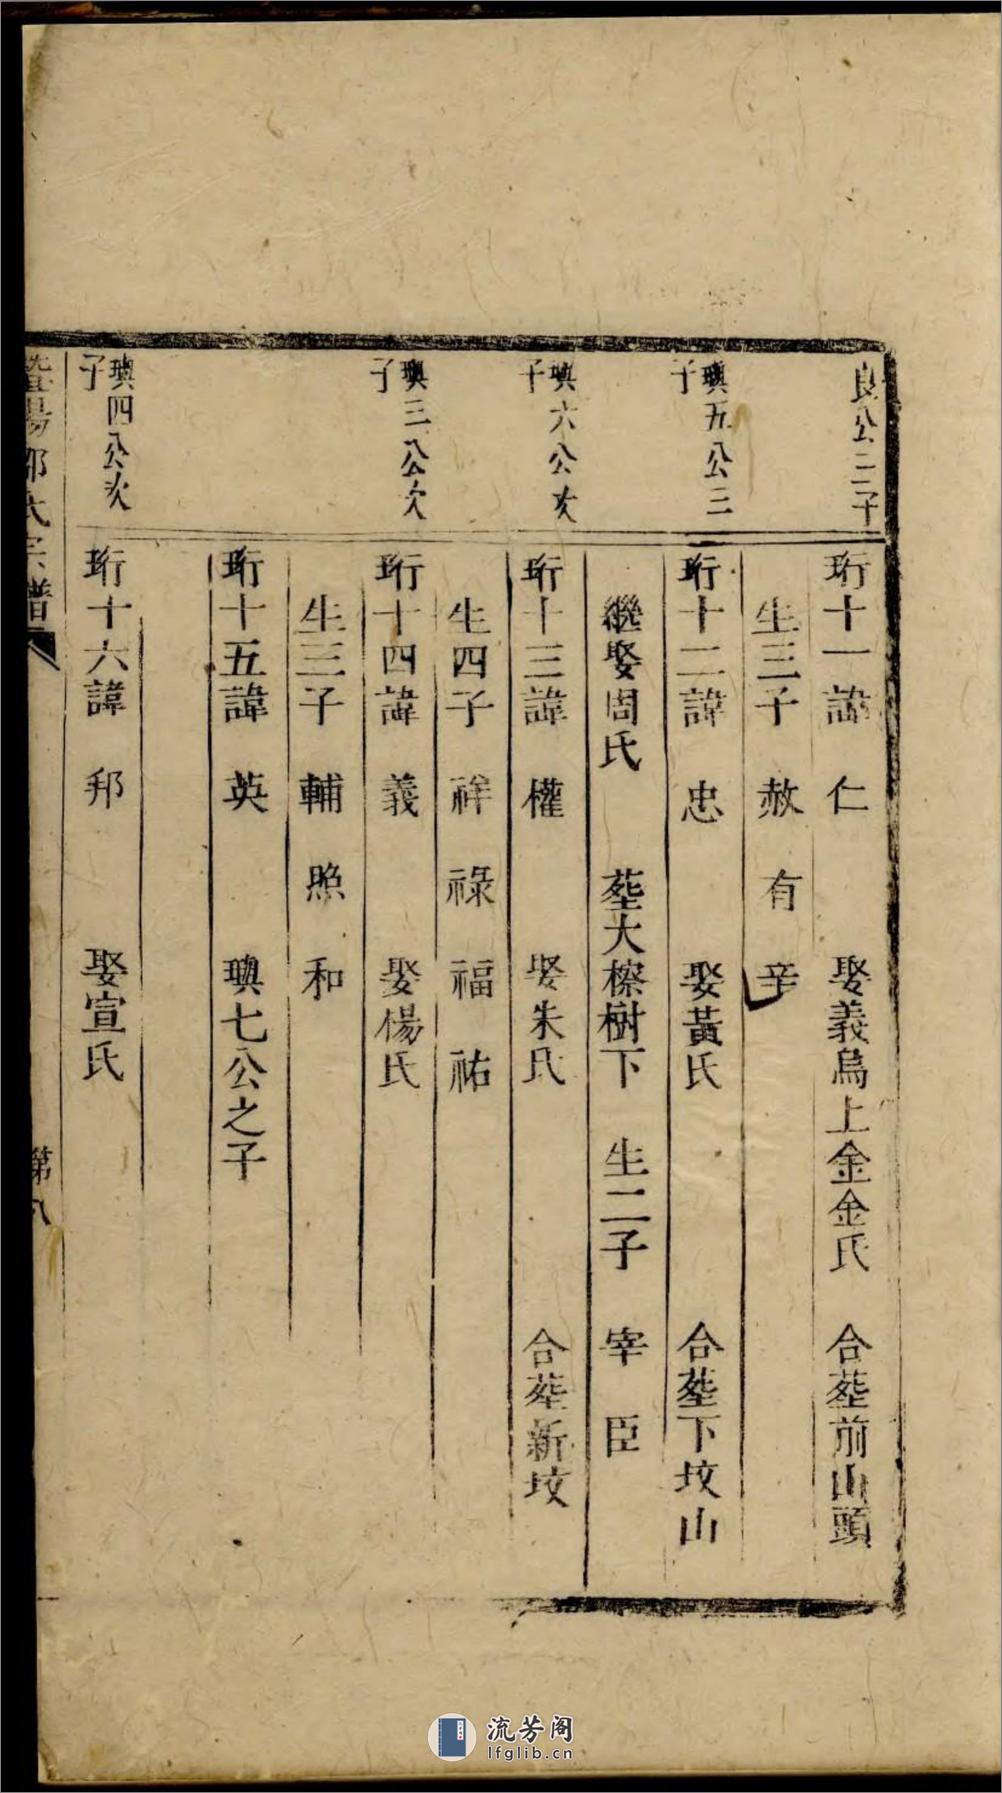 良公三子
珩十一諱 仁 娶義烏上金金氏 合塟前山頭
生三子 赦 有 辛
璵五公三子
珩十二諱 忠 娶黃氏 合塟下坟山
繼娶周氏 塟大檫樹下 生二子 宰 臣
璵六公次子
珩十三諱 權 娶朱氏 合塟新坟
生四子 祥 祿 福 祐
璵三公次子
珩十四諱 義 娶楊氏
生三子 輔 照 和
珩十五諱 英 璵七公之子
璵四公次子
珩十六諱 邦 娶宣氏
暨陽邵氏宗譜
第八
流芳阁
lfglib.cn